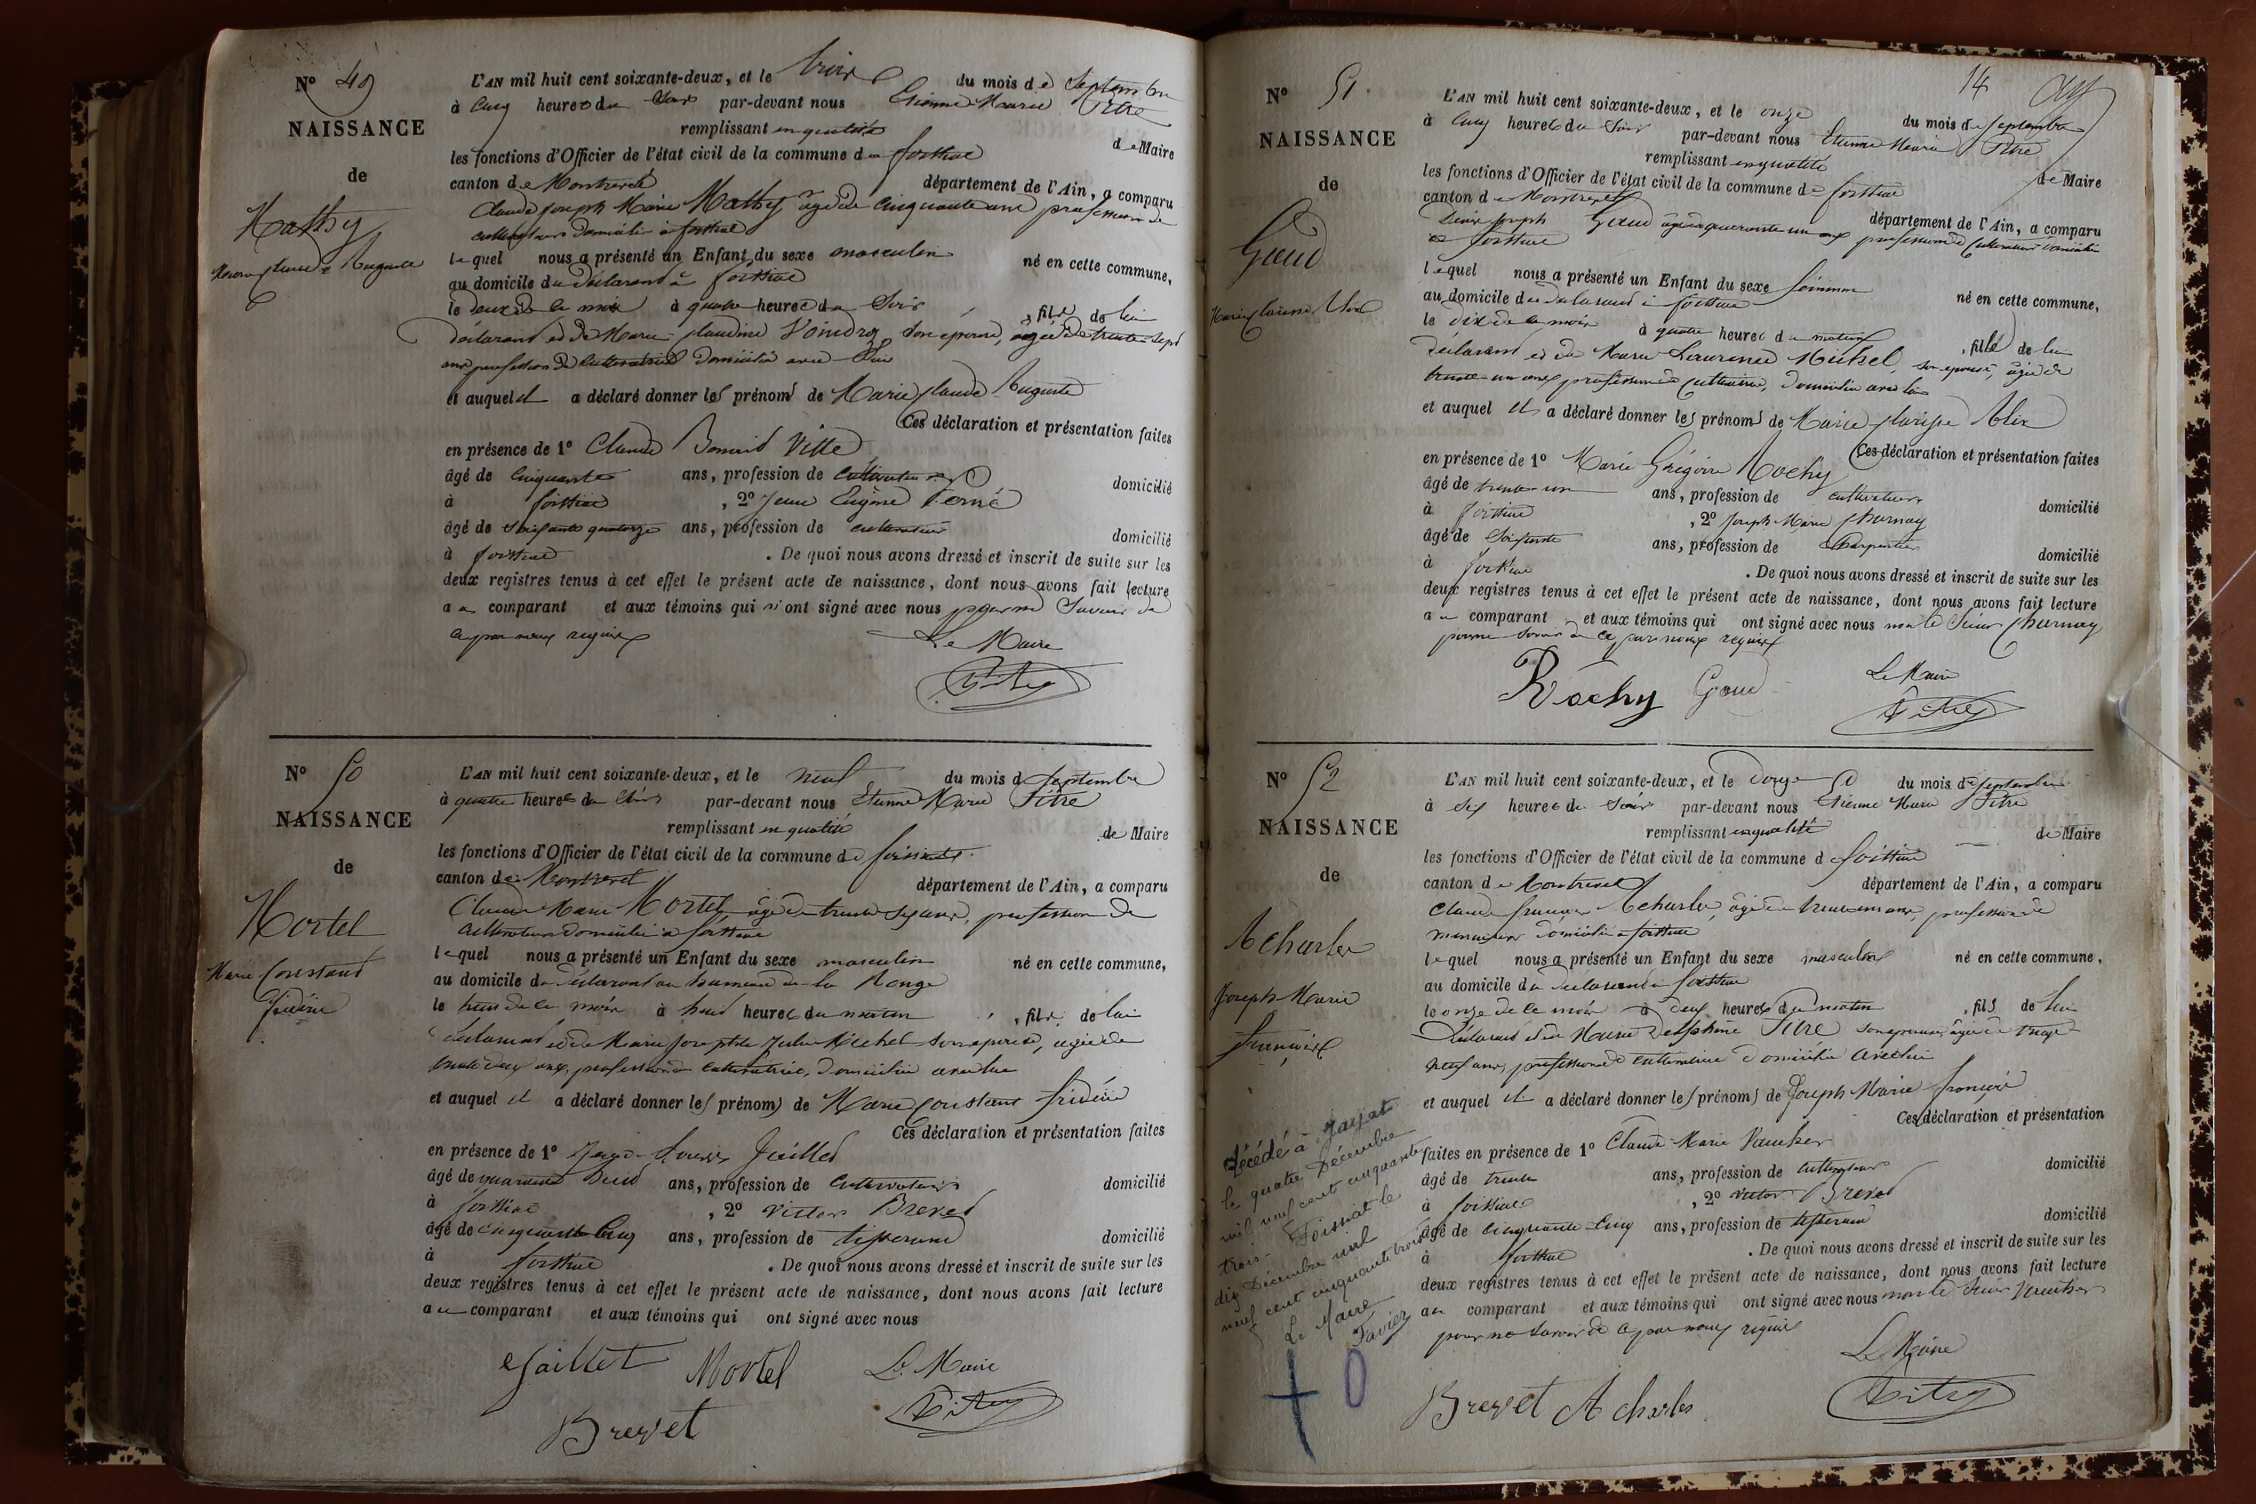 N° 49
NAISSANCE
de
Mathy
Marie Claude Auguste
L'AN mil huit cent soixante-deux, et le trois du mois de Septembre
à cinq heures du soir par-devant nous Etienne Marie Pitre
remplissant en qualité de Maire
les fonctions d'Officier de l'état civil de la commune de foissiat
canton de Montrevel département de l'Ain, a comparu
Claude Joseph Marie Mathy âgé de cinquante ans profession de
cultivateur domicilié à foissiat
lequel nous a présenté un Enfant du sexe masculin né en cette commune,
au domicile du déclarant à foissiat
le deux de ce mois à quatre heures du soir , fils de lui
déclarant et de Marie Claudine son épouse, âgée de trente-sept
ans profession de cultivatrice domiciliée avec lui
et auquel il a déclaré donner les prénoms de Marie Claude Auguste
Ces déclaration et présentation faites
en présence de 1° Claude Vitte
âgé de cinquante ans, profession de cultivateur domicilié
à foissiat , 2° Jean Eugène
âgé de soixante quatorze ans, profession de cultivateur domicilié
à foissiat . De quoi nous avons dressé et inscrit de suite sur les
deux registres tenus à cet effet le présent acte de naissance, dont nous avons fait lecture
au comparant et aux témoins qui n'ont signé avec nous pour ne savoir de
ce par nous requis
Le Maire
Pitre
N° 50
NAISSANCE
de
Mortel
Marie Constant
L'AN mil huit cent soixante-deux, et le neuf du mois de septembre
à quatre heures du soir par-devant nous Etienne Marie Pitre
remplissant en qualité de Maire
les fonctions d'Officier de l'état civil de la commune de foissiat
canton de Montrevel département de l'Ain, a comparu
Claude Marie Mortel âgé de trente six ans, profession de
cultivateur domicilié à foissiat
lequel nous a présenté un Enfant du sexe masculin né en cette commune,
au domicile du déclarant au hameau de la
le huit de ce mois à huit heures du matin , fils de lui
déclarant et de Marie Josephte Julie Michel son épouse, âgée de
trente deux ans, profession de cultivatrice, domiciliée avec lui
et auquel il a déclaré donner les prénoms de Marie Constant
Ces déclaration et présentation faites
en présence de 1° Louis Jaillet
âgé de quarante huit ans, profession de cultivateur domicilié
à foissiat , 2° Victor Brevet
âgé de cinquante cinq ans, profession de tisserand domicilié
à foissiat . De quoi nous avons dressé et inscrit de suite sur les
deux registres tenus à cet effet le présent acte de naissance, dont nous avons fait lecture
au comparant et aux témoins qui ont signé avec nous
Jaillet Mortel Le Maire
Brevet Pitre
14
N° 51
NAISSANCE
de
Goud
Marie Alix
L'AN mil huit cent soixante-deux, et le onze du mois de septembre
à cinq heures du soir par-devant nous Etienne Marie Pitre
remplissant en qualité de Maire
les fonctions d'Officier de l'état civil de la commune de foissiat
canton de Montrevel département de l'Ain, a comparu
Joseph Goud âgé de quarante un ans profession de cultivateur domicilié
à foissiat
lequel nous a présenté un Enfant du sexe féminin né en cette commune,
au domicile du déclarant à foissiat
le dix de ce mois à quatre heures du matin , fille de lui
déclarant et de Marie Laurence Michel, son épouse, âgée de
trente un ans profession de cultivatrice, domiciliée avec lui
et auquel il a déclaré donner les prénoms de Marie Alix
Ces déclaration et présentation faites
en présence de 1° Marie Grégoire Rochy
âgé de trente un ans, profession de cultivateur domicilié
à foissiat , 2° Joseph Marie Charnay
âgé de soixante ans, profession de charpentier domicilié
à foissiat . De quoi nous avons dressé et inscrit de suite sur les
deux registres tenus à cet effet le présent acte de naissance, dont nous avons fait lecture
au comparant et aux témoins qui ont signé avec nous non le sieur Charnay
pour ne savoir de ce par nous requis
Rochy Goud Le Maire
Pitre
N° 52
NAISSANCE
de
Acharles
Joseph Marie
François
L'AN mil huit cent soixante-deux, et le douze du mois de septembre
à six heures du soir par-devant nous Etienne Marie Pitre
remplissant en qualité de Maire
les fonctions d'Officier de l'état civil de la commune de foissiat
canton de Montrevel département de l'Ain, a comparu
Claude françois Acharles, âgé de ans, profession de
menuisier domicilié à foissiat
lequel nous a présenté un Enfant du sexe masculin né en cette commune,
au domicile du déclarant à foissiat
le onze de ce mois à deux heures du matin , fils de lui
déclarant et de Marie Delphine Pitre son épouse, âgée de
neuf ans, profession de cultivatrice domiciliée avec lui
et auquel il a déclaré donner les prénoms de Joseph Marie françois
Ces déclaration et présentation
faites en présence de 1° Claude Marie Vaucher
âgé de trente ans, profession de cultivateur domicilié
à foissiat , 2° Victor Brevet
âgé de cinquante cinq ans, profession de tisserand domicilié
à foissiat . De quoi nous avons dressé et inscrit de suite sur les
deux registres tenus à cet effet le présent acte de naissance, dont nous avons fait lecture
au comparant et aux témoins qui ont signé avec nous non le sieur Vaucher
pour ne savoir de ce par nous requis
Le Maire
Brevet Acharles Pitre
Décédé à Jayat
le quatre Décembre
mil neuf cent cinquante
trois. Foissiat le
dix Décembre mil
neuf cent cinquante trois
Le Maire
Favier